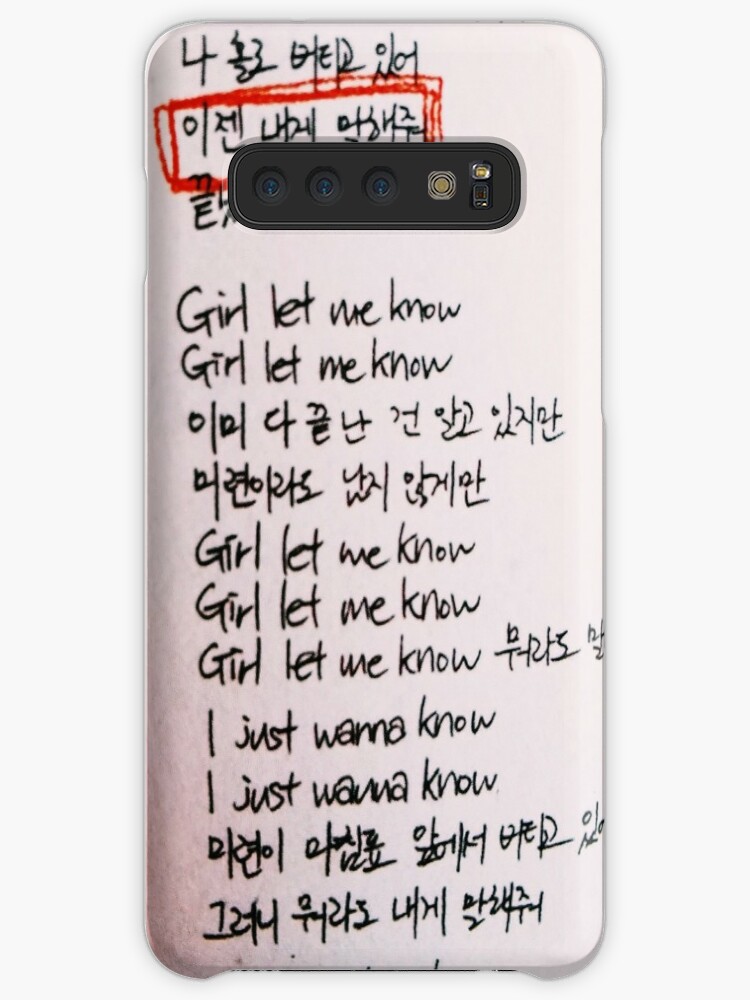 나 홀로 버티고 있어
이젠 내게 말해줘
Girl let me know
Girl let me know
이미 다 끝난 건 알고 있지만
미련이라도 남지 않게만
Girl let me know
Girl let me know
Girl let me know 뭐라도
I just wanna know
I just wanna know
미련이 마침표 앞에서 버티고
그러니 뭐라도 내게 말해줘